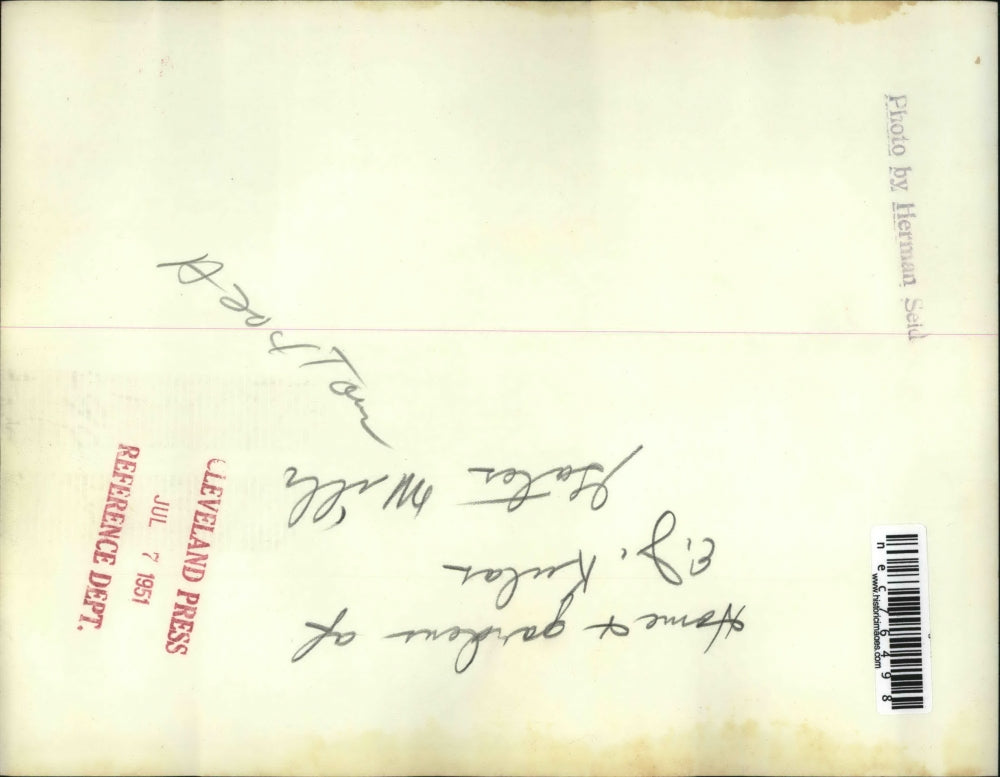 Photo by Herman Seid
Home & gardens of
E.J. Kular
Gates Mills
CLEVELAND PRESS
JUL 7 1951
REFERENCE DEPT.
necy6498
www.historicimages.com